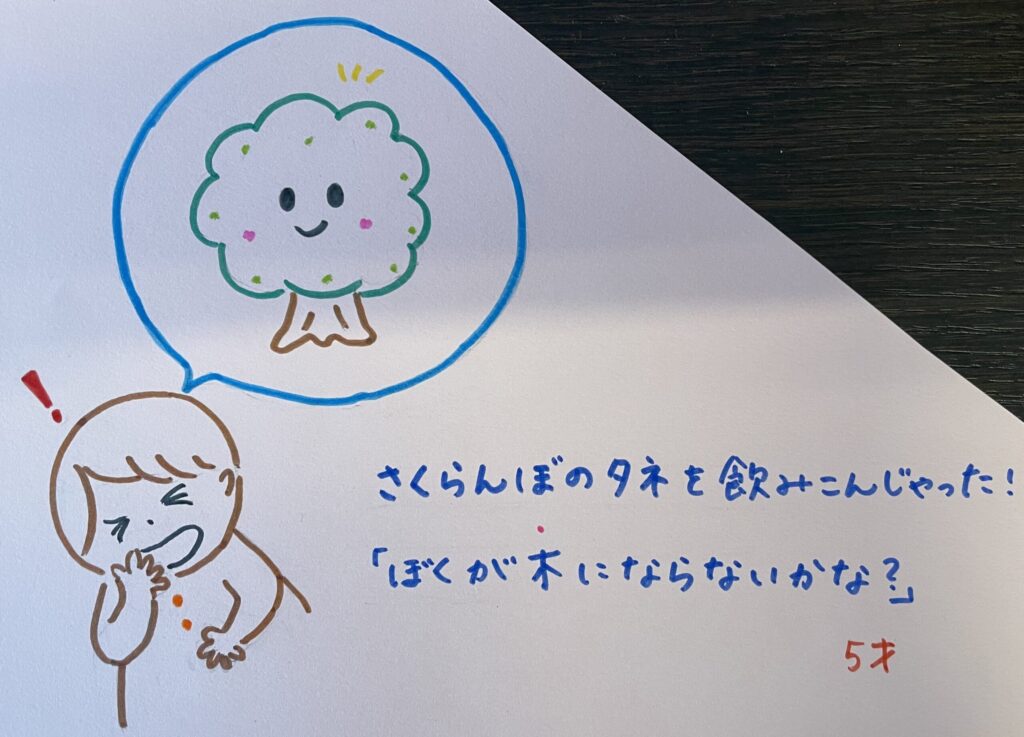 さくらんぼのタネを飲みこんじゃった!
「ぼくが木にならないかな?」
5才